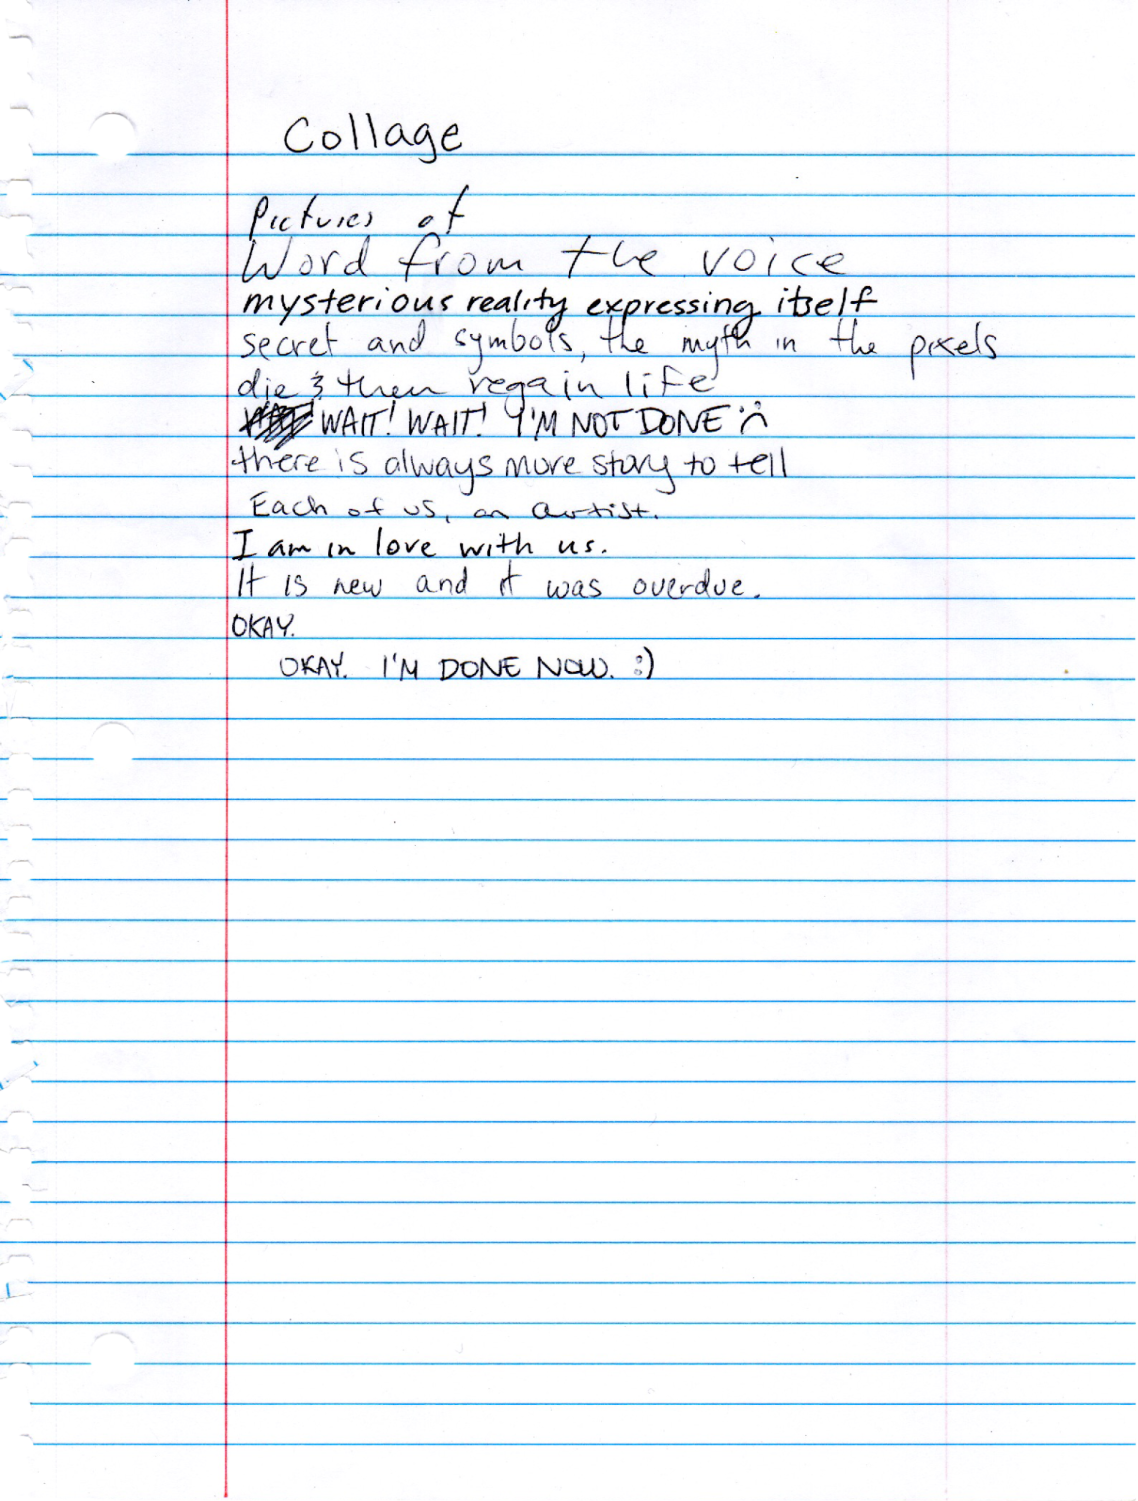 Collage
Pictures of
Word from the voice
mysterious reality expressing itself
secret and symbols, the myth in the pixels
die & then regain life
WAIT! WAIT! I'M NOT DONE :(
there is always more story to tell
Each of us, an artist.
I am in love with us.
It is new and it was overdue.
OKAY.
OKAY. I'M DONE NOW. :)